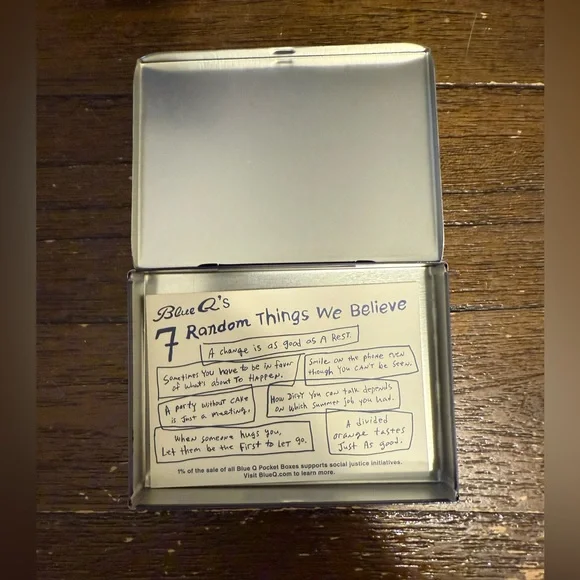 Blue Q's
7 Random Things We Believe
A change is as good as A REST.
Sometimes You have to be in favor
of what's about To Happen.
Smile on the phone even
though you CAN'T be seen.
A party without CAKE
is Just a meeting.
How Dirty You can talk depends
on which summer job you had.
When someone hugs you,
Let them be the First to LET go.
A divided
orange tastes
Just As good.
1% of the sale of all Blue Q Pocket Boxes supports social justice initiatives.
Visit BlueQ.com to learn more.